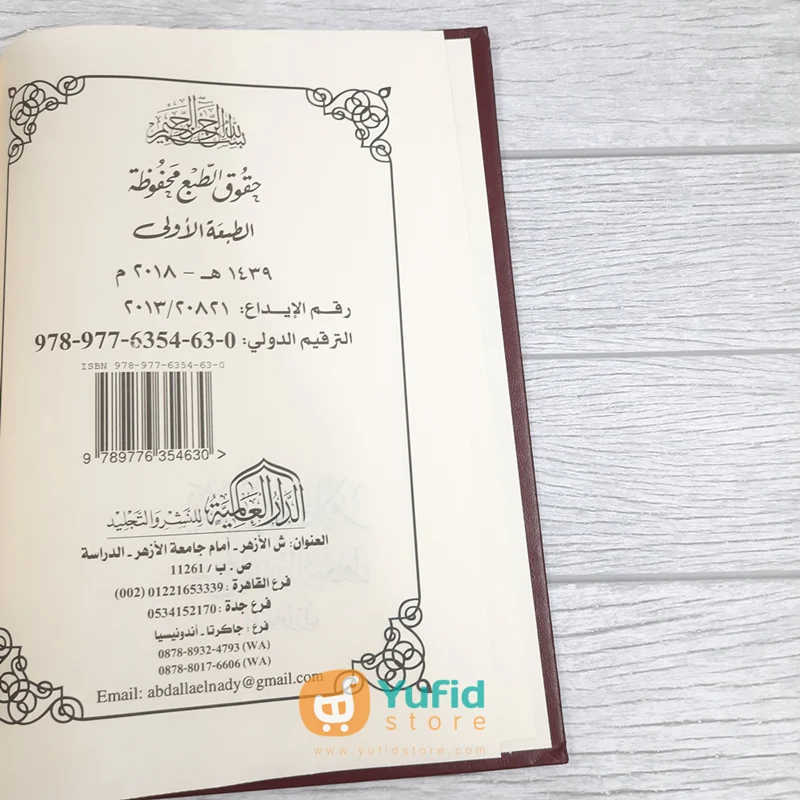 بسم الله الرحمن الرحيم
حقوق الطبع محفوظة
الطبعة الأولى
١٤٣٩ هـ - ٢٠١٨ م
رقم الإيداع: ٢٠١٣/٢٠٨٢١
الترقيم الدولي: 978-977-6354-63-0
ISBN 978-977-6354-63-0
9 789776 354630 >
الدار العالمية للنشر والتجليد
العنوان: ش الأزهر - أمام جامعة الأزهر - الدراسة
ص . ب / 11261
فرع القاهرة : 01221653339 (002)
فرع جدة : 0534152170
فرع : جاكرتا - أندونيسيا
0878-8932-4793 (WA)
0878-8017-6606 (WA)
Email: abdallaelnady@gmail.com
Yufid
store
www.yufidstore.com